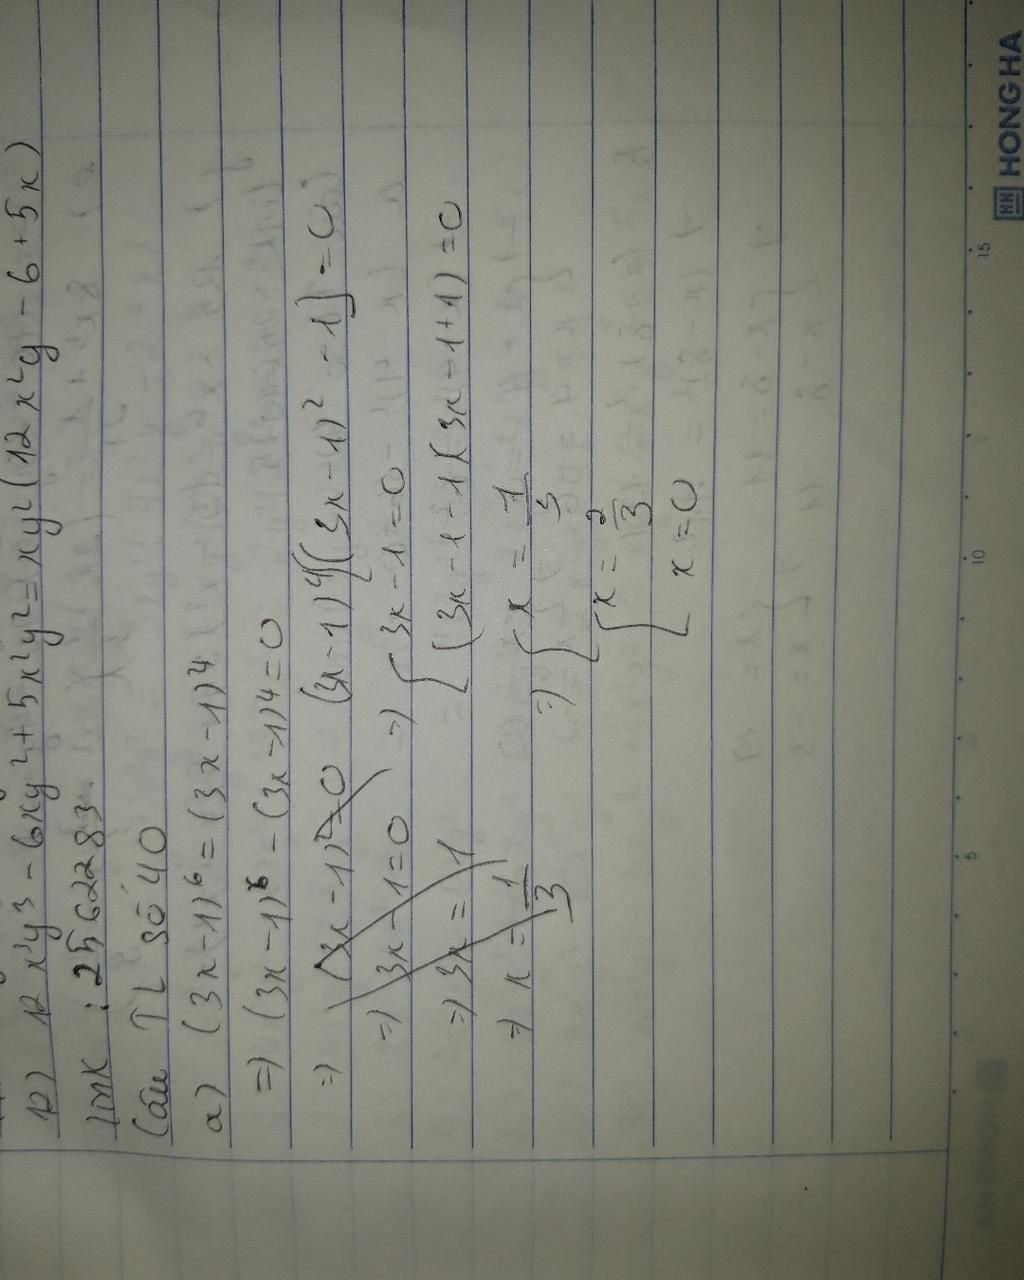 12) 12x³y³ - 6xy² + 5x²y² = xy² (12x²y - 6 + 5x)
link : 25622283
Câu TL số 40
a) (3x-1)⁶ = (3x-1)⁴
=> (3x-1)⁶ - (3x-1)⁴ = 0
=> (3x-1)² = 0 (3x-1)⁴[(3x-1)² - 1] = 0
=> 3x-1 = 0 => [ 3x-1 = 0
=> 3x = 1 (3x-1-1)(3x-1+1) = 0
=> x = 1/3 => [ x = 1/3
[ x = 2/3
x = 0
5 10 15
HONG HA